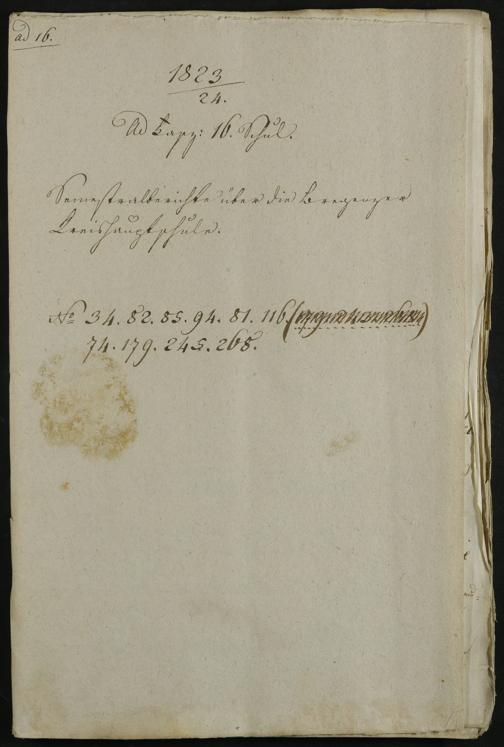 ad 16.
1823
24.
Ad Kapz: 16. Schul.
Semestralberichte über die Bregenzer
Kreishauptschule.
No 34. 82. 85. 94. 81. 116.
74. 179. 245. 268.